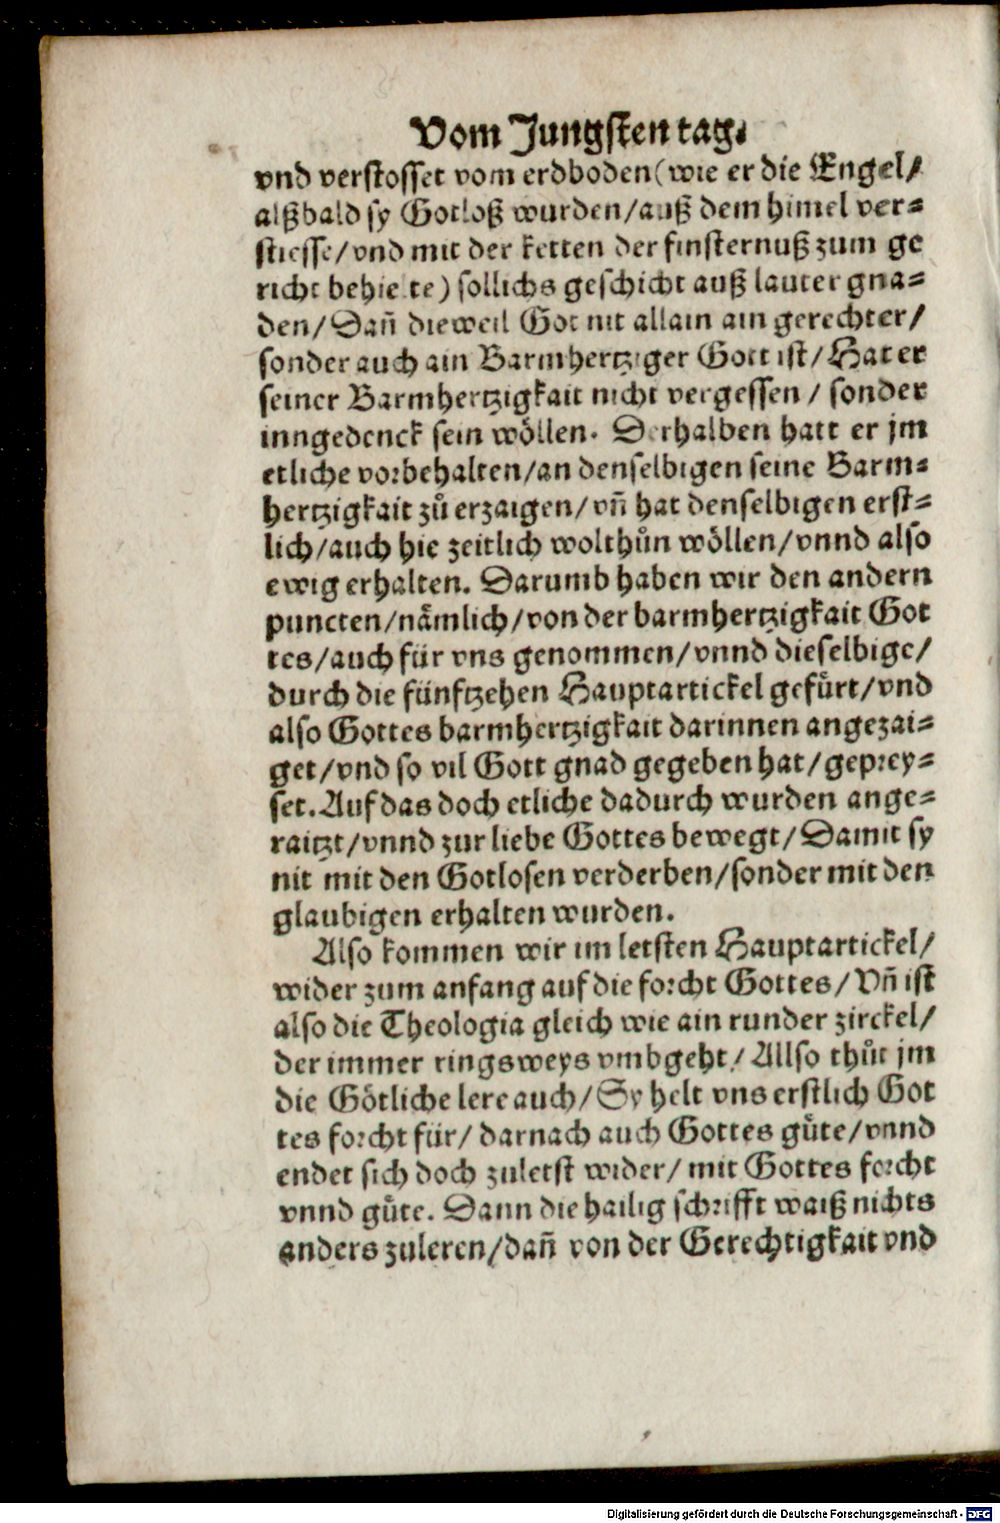 Vom Jungsten tag.
vnd verstosset vom erdboden (wie er die Engel/
alßbald sy Gotloß wurden/auß dem himel ver=
stiesse/vnd mit der ketten der finsternuß zum ge
richt behielte) sollichs geschicht auß lauter gna=
den/Dañ dieweil Got nit allain ain gerechter/
sonder auch ain Barmhertziger Gott ist/Hat er
seiner Barmhertzigkait nicht vergessen / sonder
inngedenck sein wöllen. Derhalben hatt er jm
etliche vorbehalten/an denselbigen seine Barm=
hertzigkait zů erzaigen/vñ hat denselbigen erst=
lich/auch hie zeitlich wolthůn wöllen/vnnd also
ewig erhalten. Darumb haben wir den andern
puncten/nämlich/von der barmhertzigkait Got
tes/auch für vns genommen/vnnd dieselbige/
durch die fünftzehen Hauptartickel gefürt/vnd
also Gottes barmhertzigkait darinnen angezai=
get/vnd so vil Gott gnad gegeben hat/geprey=
set. Auf das doch etliche dadurch wurden ange=
raitzt/vnnd zur liebe Gottes bewegt/Damit sy
nit mit den Gotlosen verderben/sonder mit den
glaubigen erhalten wurden.
Also kommen wir im letsten Hauptartickel/
wider zum anfang auf die forcht Gottes/Vñ ist
also die Theologia gleich wie ain runder zirckel/
der immer ringsweys vmbgeht/Allso thůt jm
die Götliche lere auch/Sy helt vns erstlich Got
tes forcht für/ darnach auch Gottes güte/vnnd
endet sich doch zuletst wider/ mit Gottes forcht
vnnd güte. Dann die hailig schrifft waiß nichts
anders zuleren/dañ von der Gerechtigkait vnd
Digitalisierung gefördert durch die Deutsche Forschungsgemeinschaft - DFG